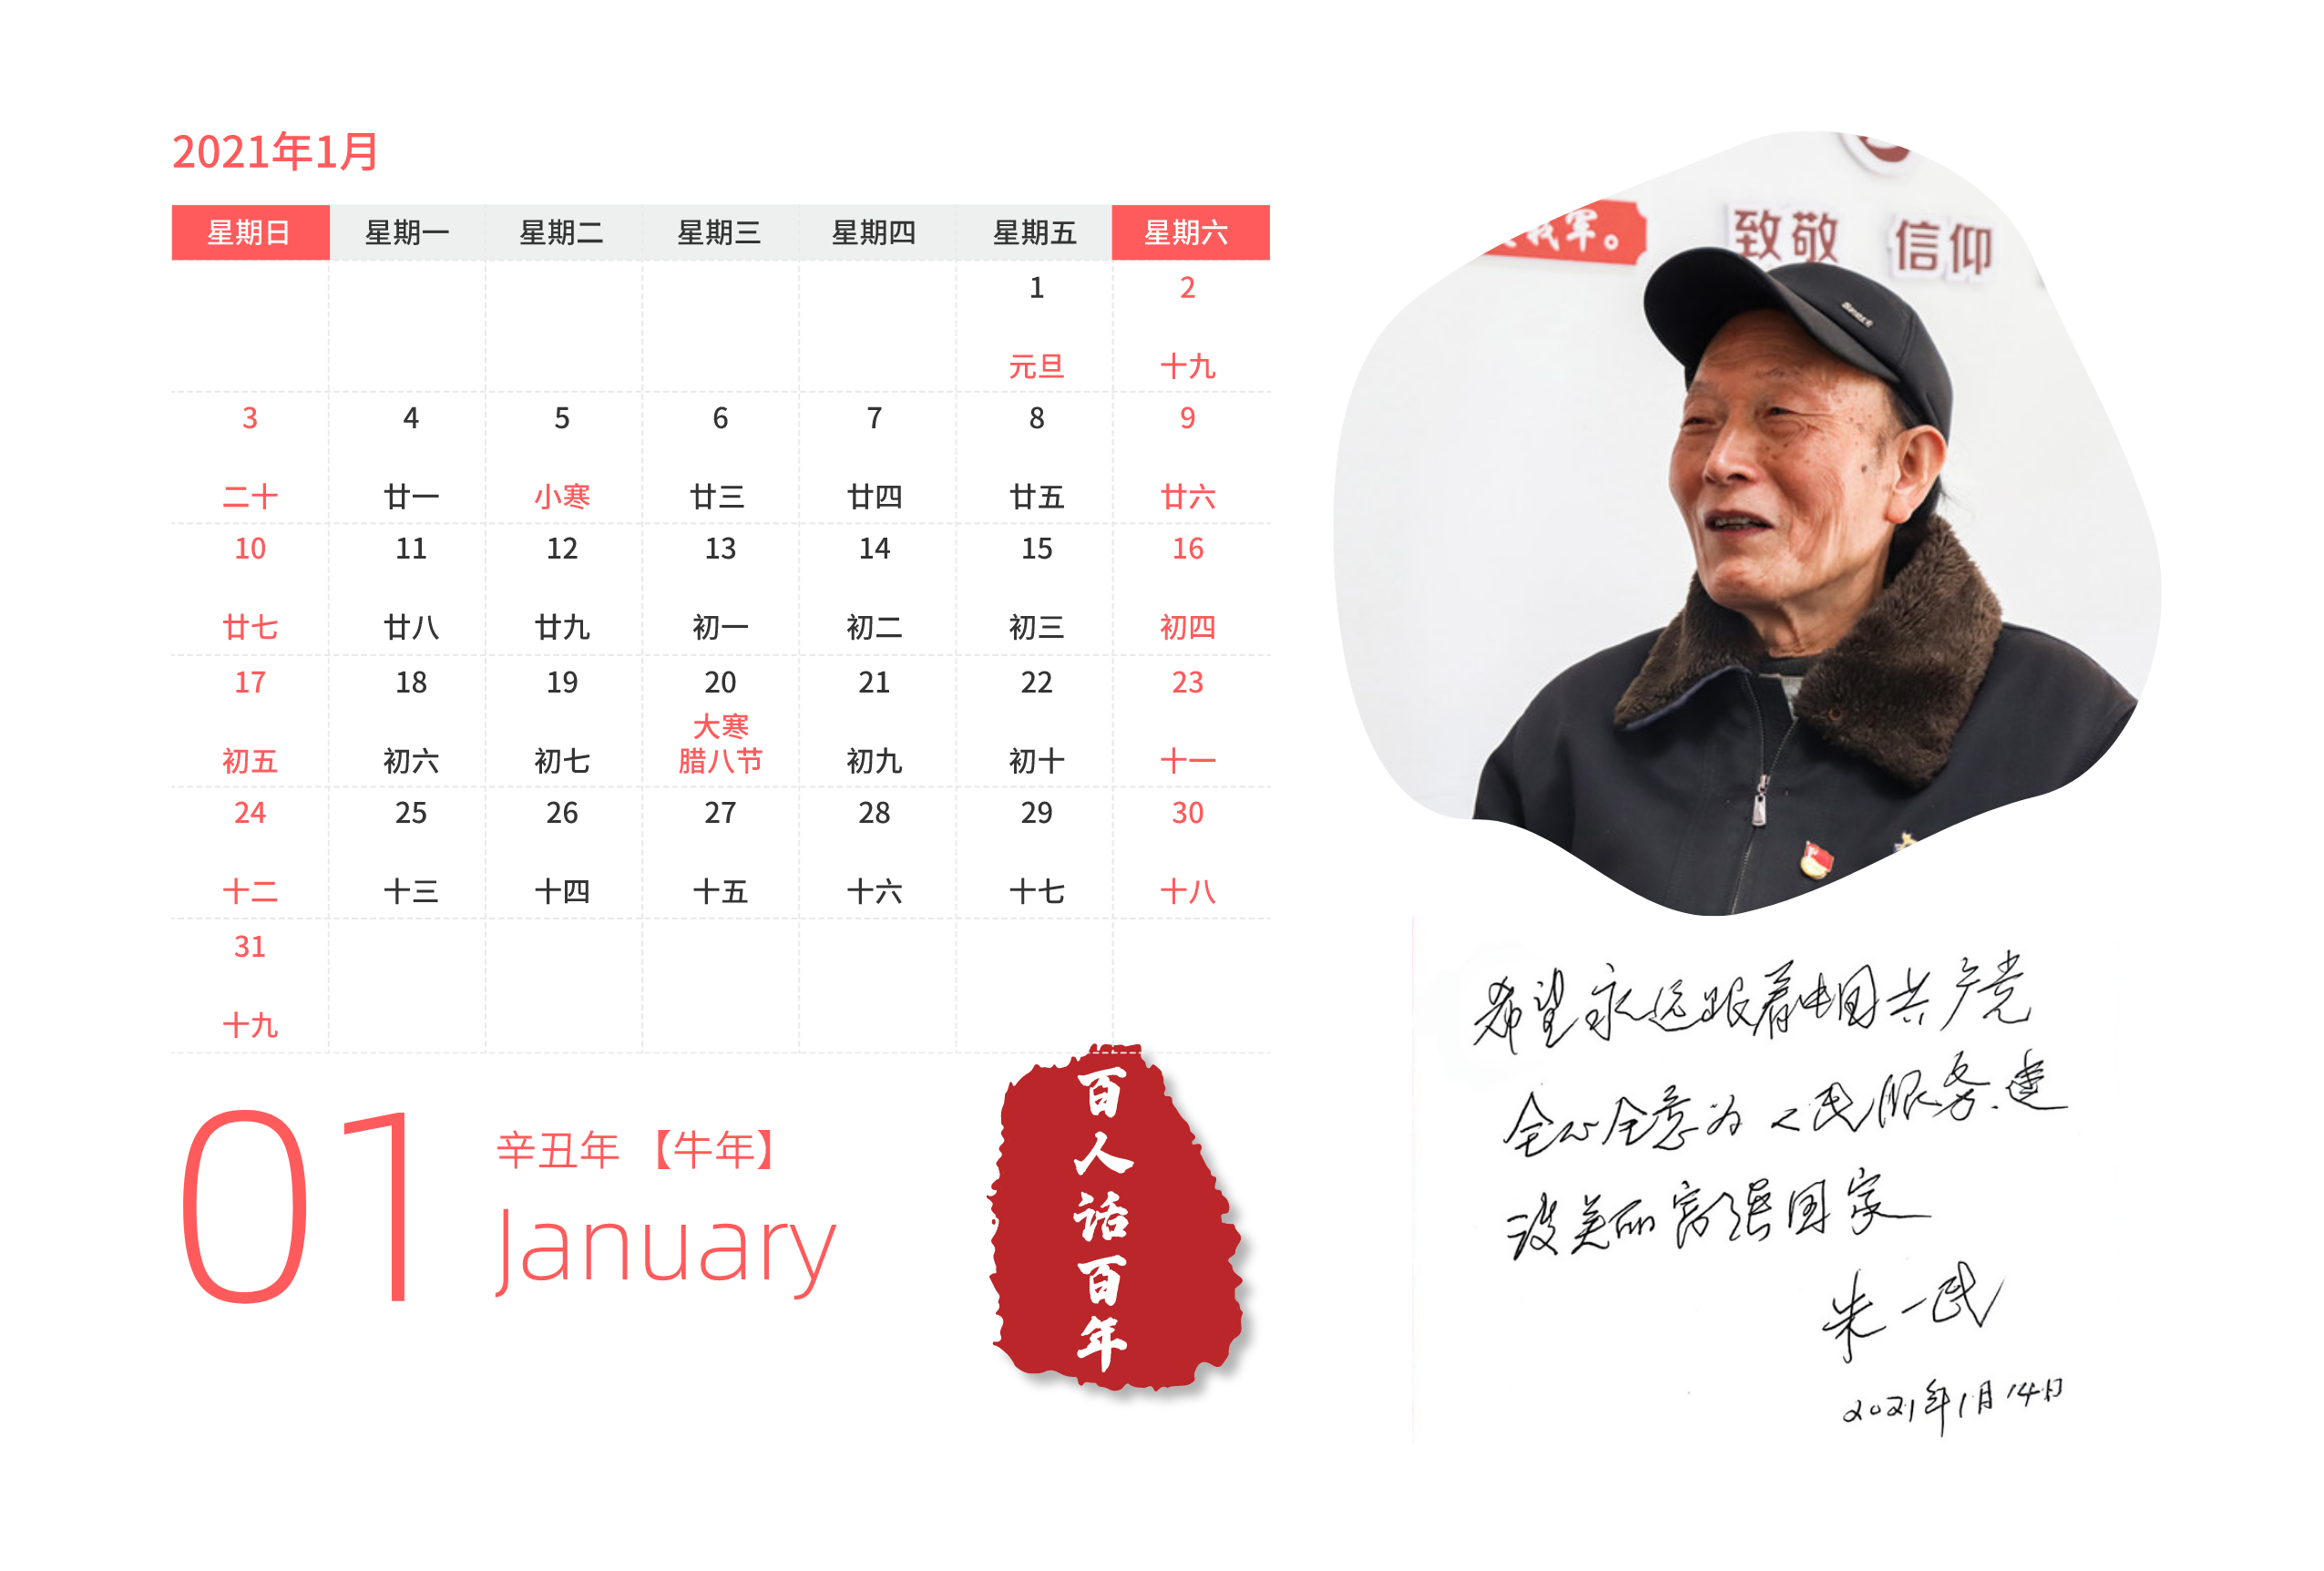 2021年1月
星期日 星期一 星期二 星期三 星期四 星期五 星期六
1 2
元旦 十九
3 4 5 6 7 8 9
二十 廿一 小寒 廿三 廿四 廿五 廿六
10 11 12 13 14 15 16
廿七 廿八 廿九 初一 初二 初三 初四
17 18 19 20 21 22 23
大寒
初五 初六 初七 腊八节 初九 初十 十一
24 25 26 27 28 29 30
十二 十三 十四 十五 十六 十七 十八
31
十九
01
辛丑年【牛年】
January
百人话百年
我军。
致敬 信仰
希望永远跟着中国共产党
全心全意为人民服务.建
设美丽富强国家
朱一民
2021年1月14日